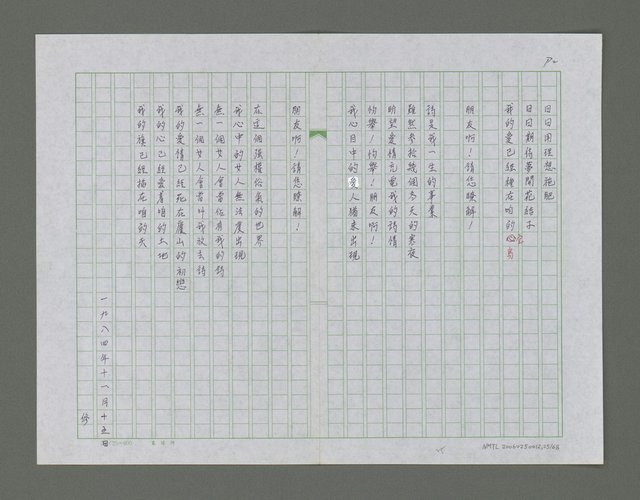 P2
日日用理想施肥
日日期待夢開花結子
我的愛已經種在咱的心窩
朋友啊!請您瞭解!
詩是我一生的事業
雖然參拾幾個冬天的寒夜
盼望愛情充電我的詩情
怜舉!怜舉!朋友啊!
我心目中的愛人猶未出現
朋友啊!請您瞭解!
在這個強權俗氣的世界
我心中的女人無法度出現
無一個女人會當佔有我的詩
無一個女人會當叫我放去詩
我的愛情已經死在廬山的初戀
我的心已經愛著咱的土地
我的旗已經插在咱的天
一九八四年十一月十五
修
NMTL